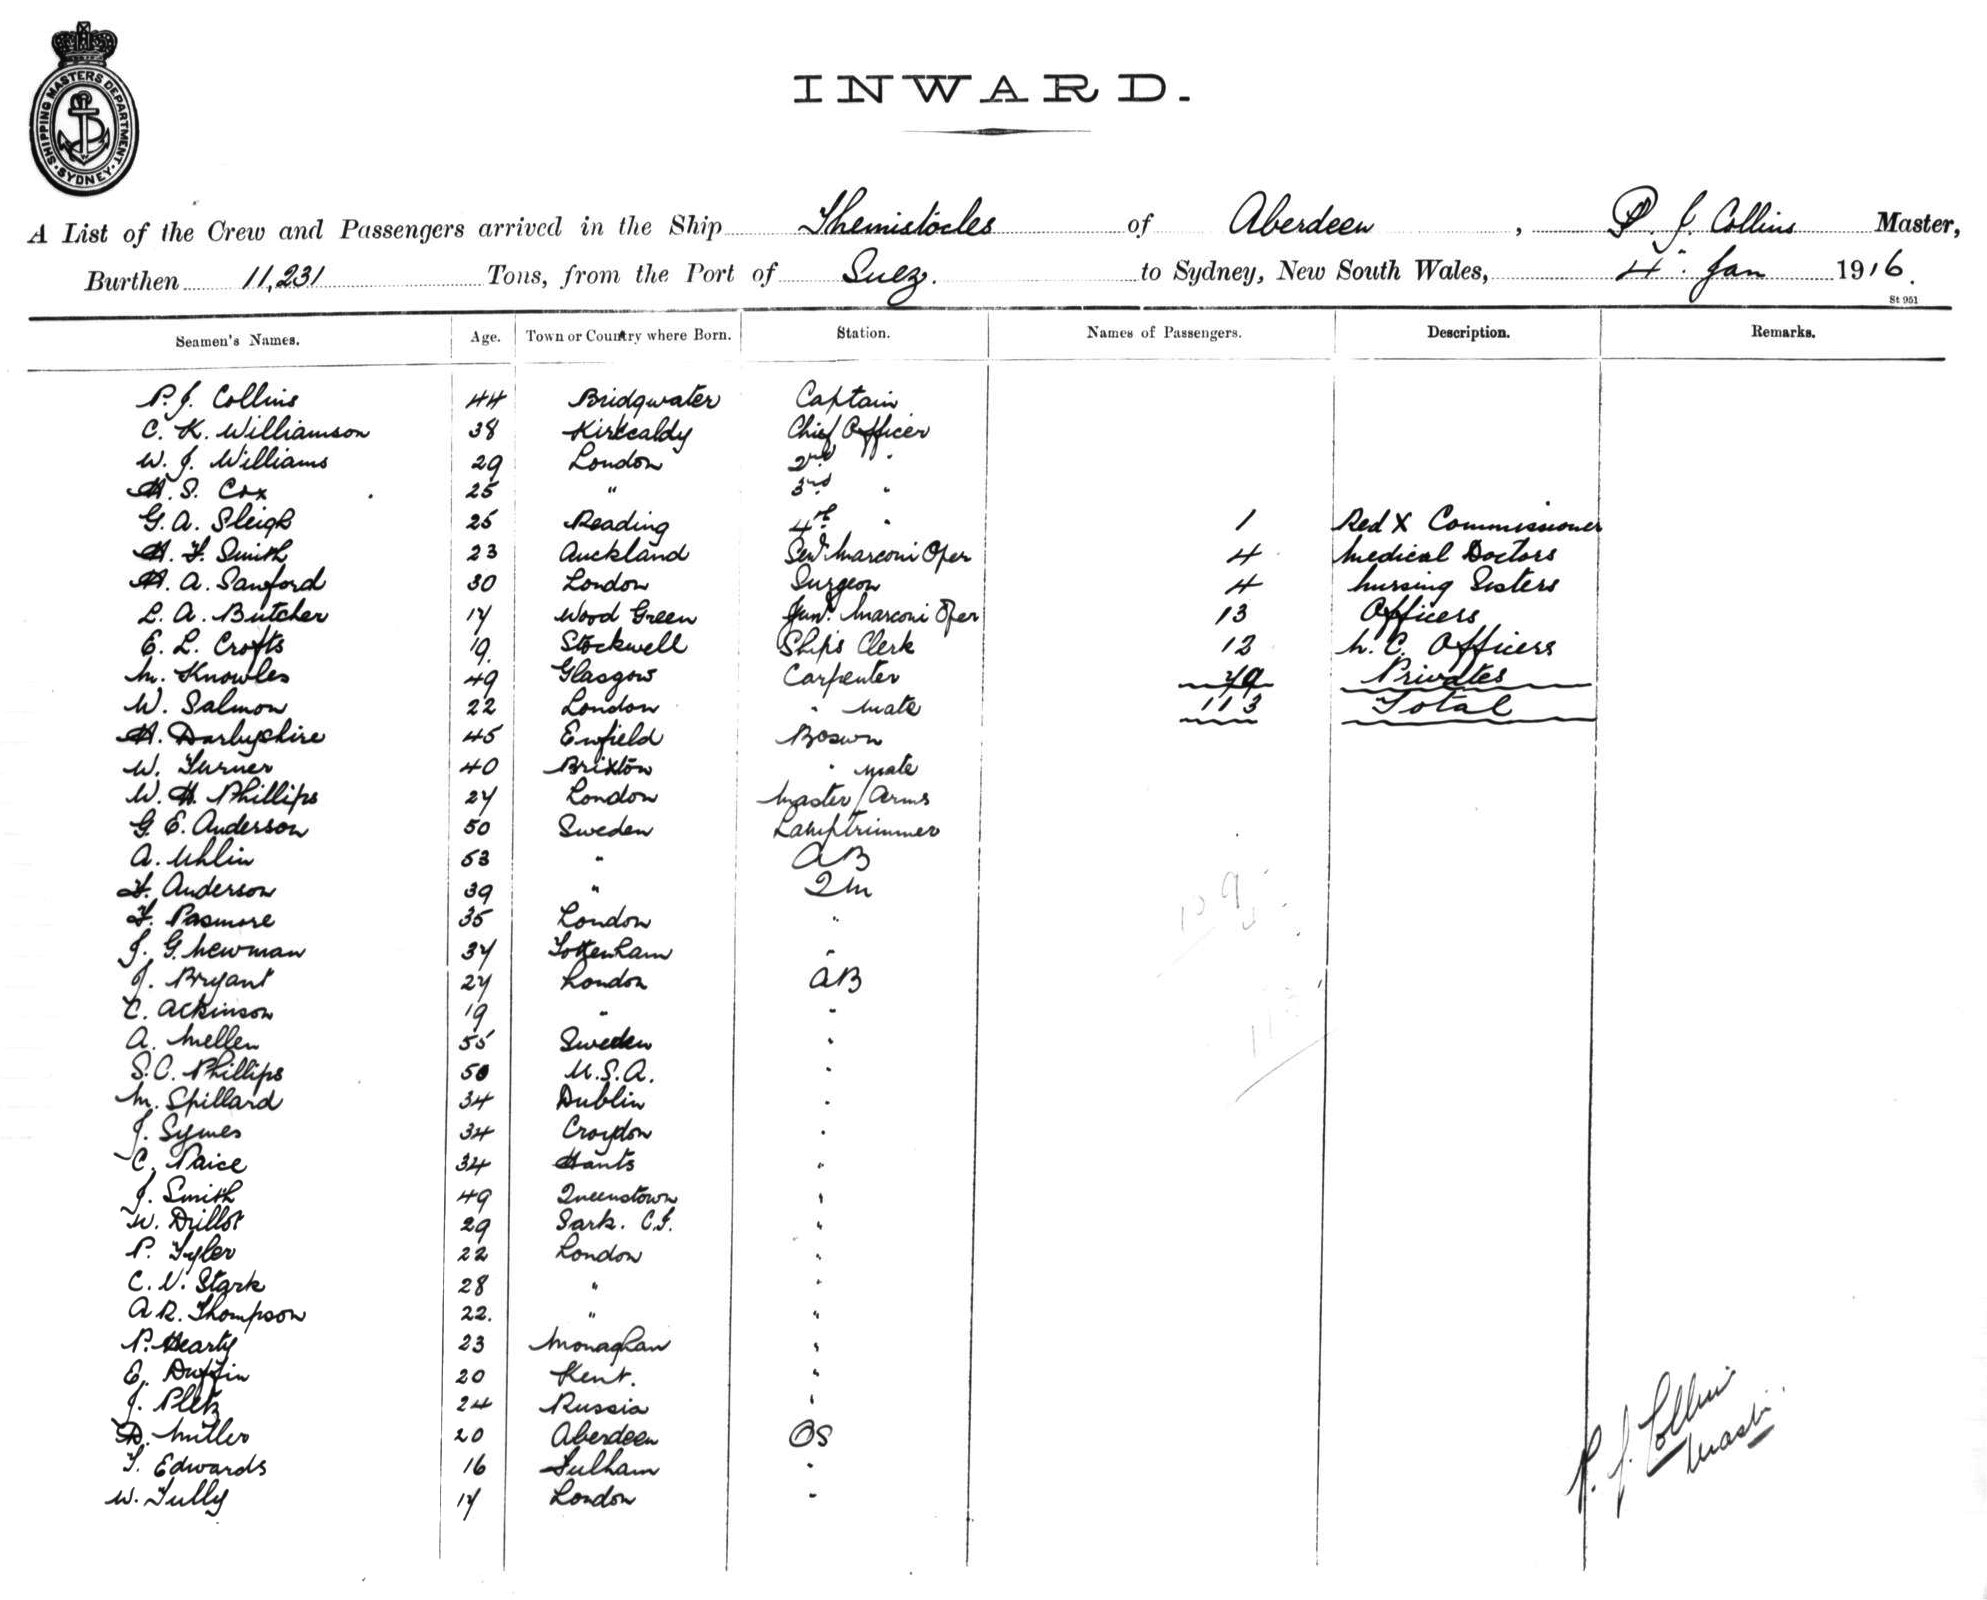 SHIPPING MASTERS DEPARTMENT. SYDNEY.
INWARD.
A List of the Crew and Passengers arrived in the Ship Themistocles of Aberdeen, P. J. Collins Master,
Burthen 11,231 Tons, from the Port of Suez. to Sydney, New South Wales, 4th Jan 1916.
St 951
Seamen's Names. Age. Town or Country where Born. Station. Names of Passengers. Description. Remarks.
P. J. Collins 44 Bridgwater Captain
C. K. Williamson 38 Kirkcaldy Chief Officer
W. J. Williams 29 London 2nd "
H. S. Cox 25 " 3rd "
G. A. Sleigh 25 Reading 4th " 1 Red X Commissioner
H. F. Smith 23 Auckland Senr Marconi Oper 4 Medical Doctors
H. A. Sanford 30 London Surgeon 4 Nursing Sisters
L. A. Butcher 17 Wood Green Junr Marconi Oper 13 Officers
E. L. Crofts 19. Stockwell Ship's Clerk 12 N. C. Officers
M. Knowles 49 Glasgow Carpenter 79 Privates
W. Salmon 22 London " mate 113 Total
H. Darbyshire 45 Enfield Bosun
W. Turner 40 Brixton " mate
W. H. Phillips 27 London Master/Arms
G. E. Anderson 50 Sweden Lamptrimmer
A. Uhlin 53 " AB
F. Anderson 39 " QM
F. Pasmore 35 London "
J. G. Newman 37 Tottenham "
J. Bryant 27 London AB
C. Ackinson 19 " "
A. Mellen 55 Sweden "
S. C. Phillips 50 U.S.A. "
M. Spillard 34 Dublin "
J. Symes 34 Croydon "
C. Paice 34 Hants "
J. Smith 49 Queenstown "
W. Drillot 29 Sark. C.I. "
P. Tyler 22 London "
C. V. Stark 28 " "
A R. Thompson 22. " "
P. Hearty 23 Monaghan "
E. Duffin 20 Kent. "
J. Pletz 24 Russia "
D. Miller 20 Aberdeen OS
T. Edwards 16 Fulham "
W. Tully 17 London "
P. J. Collins
Master